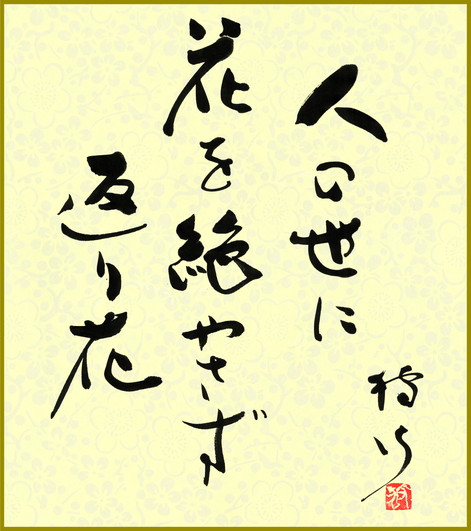 人の世に
花を絶やさず
返り花
狩行